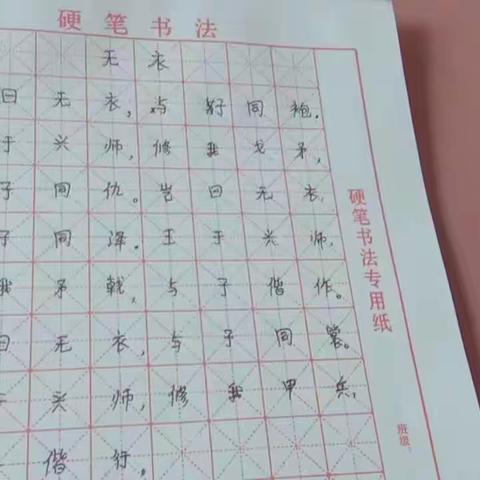 硬笔书法
无衣
曰无衣,与好同袍.
于兴师,修我戈矛,
子同仇。岂曰无衣,
子同泽.王于兴师,
我矛戟,与子偕作。
曰无衣,与子同裳。
兴师,修我甲兵,
偕行。
硬笔书法专用纸
班级: